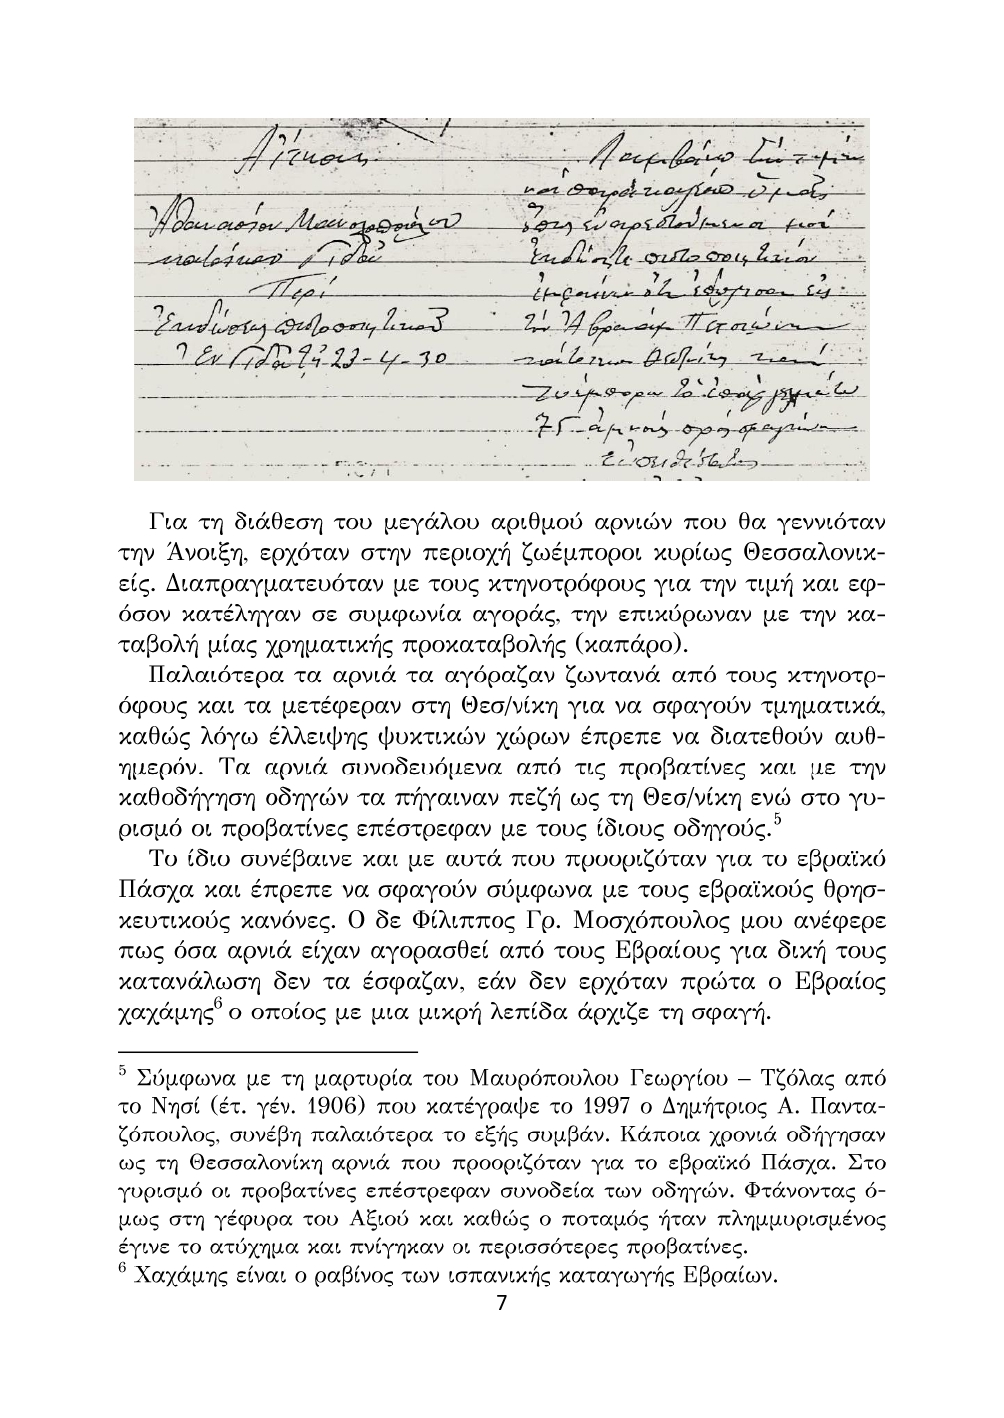 Αίτησις
Αθανασίου
κατοίκου Γιδά
Περί
Εκδόσεως πιστοποιητικού
Εν Γιδά τη 23-4-30
Λαμβάνω την τιμήν
και παρακαλέσω υμάς
όπως ευαρεστούμενοι μοί
εκδόσητε πιστοποιητικόν
εμφαίνον ότι επώλησα εις
τον Αβραάμ
κάτοικον Θεσ/νίκης και
ζωέμπορον το επάγγελμα
75 αμνούς προς σφαγήν
Ευπειθέστατος
Για τη διάθεση του μεγάλου αριθμού αρνιών που θα γεννιόταν
την Άνοιξη, ερχόταν στην περιοχή ζωέμποροι κυρίως Θεσσαλονικ-
είς. Διαπραγματευόταν με τους κτηνοτρόφους για την τιμή και εφ-
όσον κατέληγαν σε συμφωνία αγοράς, την επικύρωναν με την κα-
ταβολή μίας χρηματικής προκαταβολής (καπάρο).
Παλαιότερα τα αρνιά τα αγόραζαν ζωντανά από τους κτηνοτρ-
όφους και τα μετέφεραν στη Θεσ/νίκη για να σφαγούν τμηματικά,
καθώς λόγω έλλειψης ψυκτικών χώρων έπρεπε να διατεθούν αυθ-
ημερόν. Τα αρνιά συνοδευόμενα από τις προβατίνες και με την
καθοδήγηση οδηγών τα πήγαιναν πεζή ως τη Θεσ/νίκη ενώ στο γυ-
ρισμό οι προβατίνες επέστρεφαν με τους ίδιους οδηγούς.5
Το ίδιο συνέβαινε και με αυτά που προοριζόταν για το εβραϊκό
Πάσχα και έπρεπε να σφαγούν σύμφωνα με τους εβραϊκούς θρησ-
κευτικούς κανόνες. Ο δε Φίλιππος Γρ. Μοσχόπουλος μου ανέφερε
πως όσα αρνιά είχαν αγορασθεί από τους Εβραίους για δική τους
κατανάλωση δεν τα έσφαζαν, εάν δεν ερχόταν πρώτα ο Εβραίος
χαχάμης6 ο οποίος με μια μικρή λεπίδα άρχιζε τη σφαγή.
5 Σύμφωνα με τη μαρτυρία του Μαυρόπουλου Γεωργίου – Τζόλας από
το Νησί (έτ. γέν. 1906) που κατέγραψε το 1997 ο Δημήτριος Α. Παντα-
ζόπουλος, συνέβη παλαιότερα το εξής συμβάν. Κάποια χρονιά οδήγησαν
ως τη Θεσσαλονίκη αρνιά που προοριζόταν για το εβραϊκό Πάσχα. Στο
γυρισμό οι προβατίνες επέστρεφαν συνοδεία των οδηγών. Φτάνοντας ό-
μως στη γέφυρα του Αξιού και καθώς ο ποταμός ήταν πλημμυρισμένος
έγινε το ατύχημα και πνίγηκαν οι περισσότερες προβατίνες.
6 Χαχάμης είναι ο ραβίνος των ισπανικής καταγωγής Εβραίων.
7